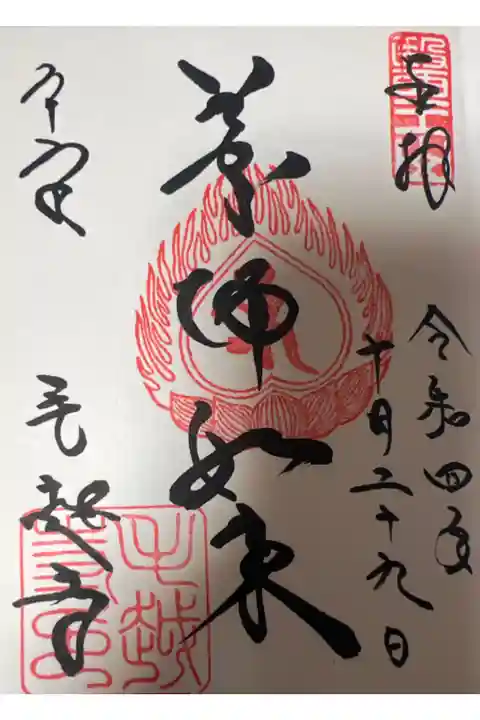 奉拝
令和四年
十月二十九日
薬師如来
平泉
毛越寺
毛越寺印